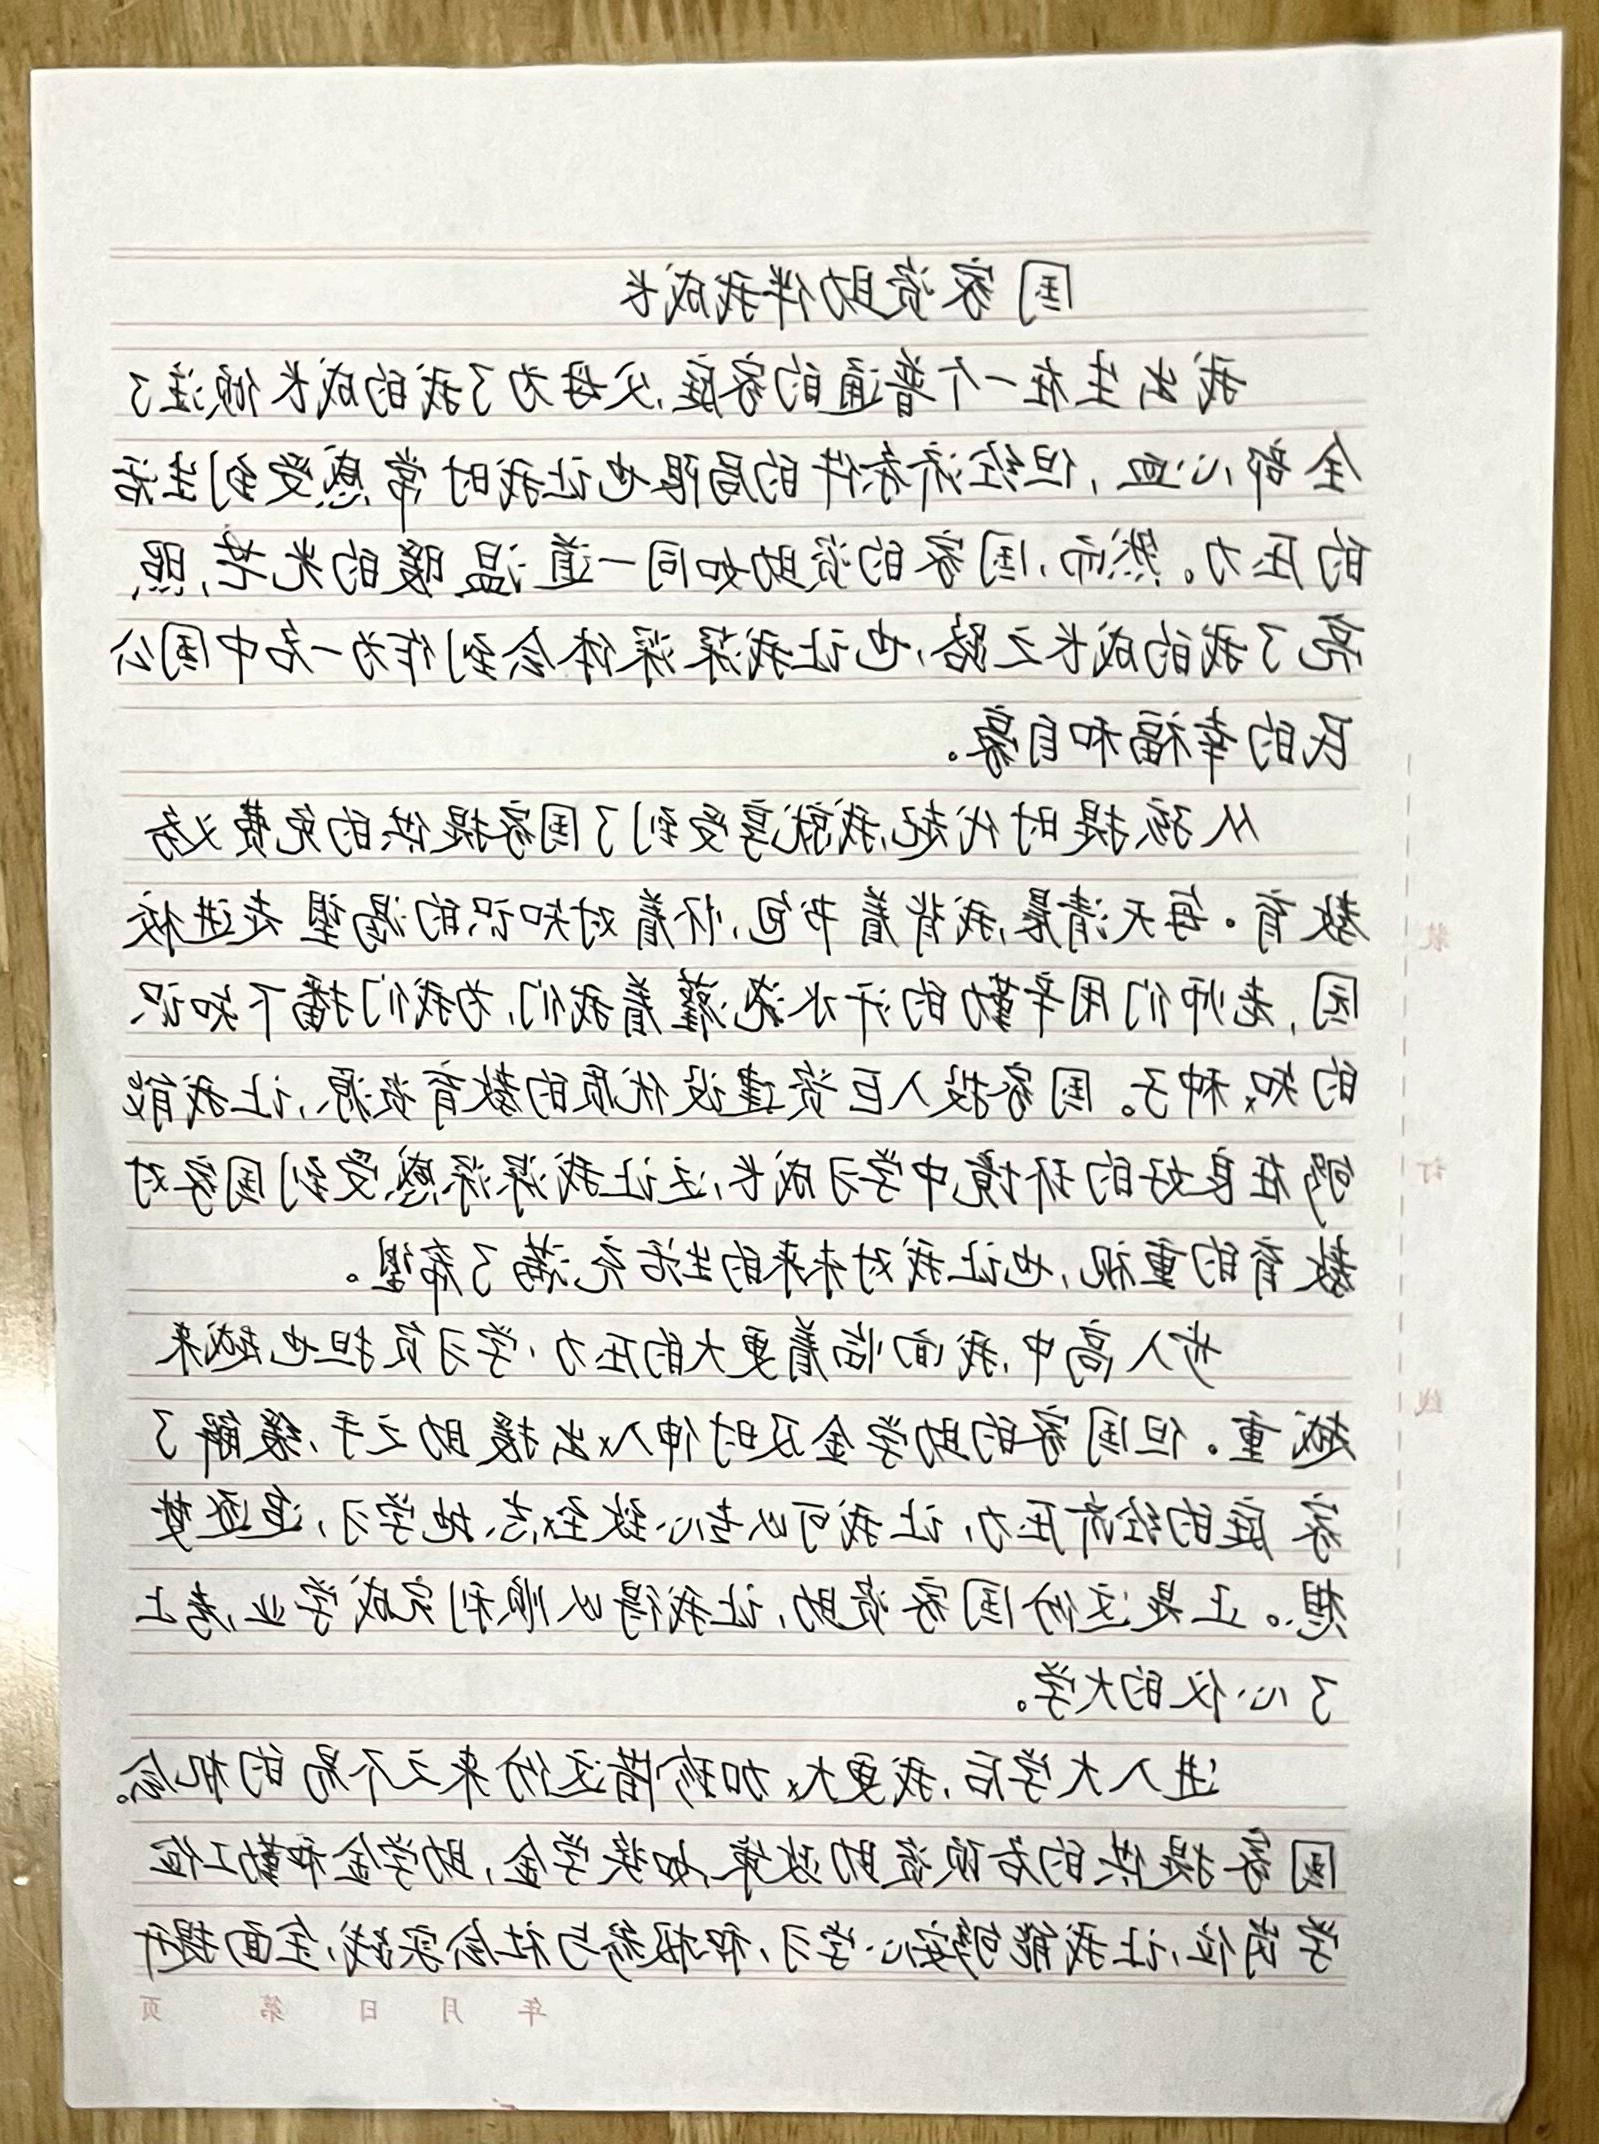 国家资助伴我成长
我出生在一个普通的家庭,父母为了我的成长倾注了
全部心血,但经济条件的局限也让我时常感受到生活
的压力。然而,国家的资助如同一道温暖的光芒,照
亮了我的成长之路,也让我深深体会到作为一名中国公
民的幸福和自豪。
从孩提时代起,我就享受到了国家提供的免费义务
教育。每天清晨,我背着书包,怀着对知识的渴望走进校
园,老师们用辛勤的汗水浇灌着我们,为我们播下知识
的知种子。国家投入巨资建设优质的教育资源,让我能
够在良好的环境中学习成长,这让我深深感受到国家对
教育的重视,也让我对未来的生活充满了希望。
步入高中,我面临着更大的压力,学习负担也越来
越重。但国家的助学金及时伸入出援助之手,缓解了
家庭的经济压力,让我可以专心致志地学习,追逐梦
想。正是这份国家资助,让我得以顺利完成学业,考上
了心仪的大学。
进入大学后,我更大加珍惜这份来之不易的机会。
国家提供的各项资助政策,如奖学金,助学金和勤工俭
学岗位,让我能够安心学习,积极参与社会实践,全面提升
装
订
线
年 月 日 第 页